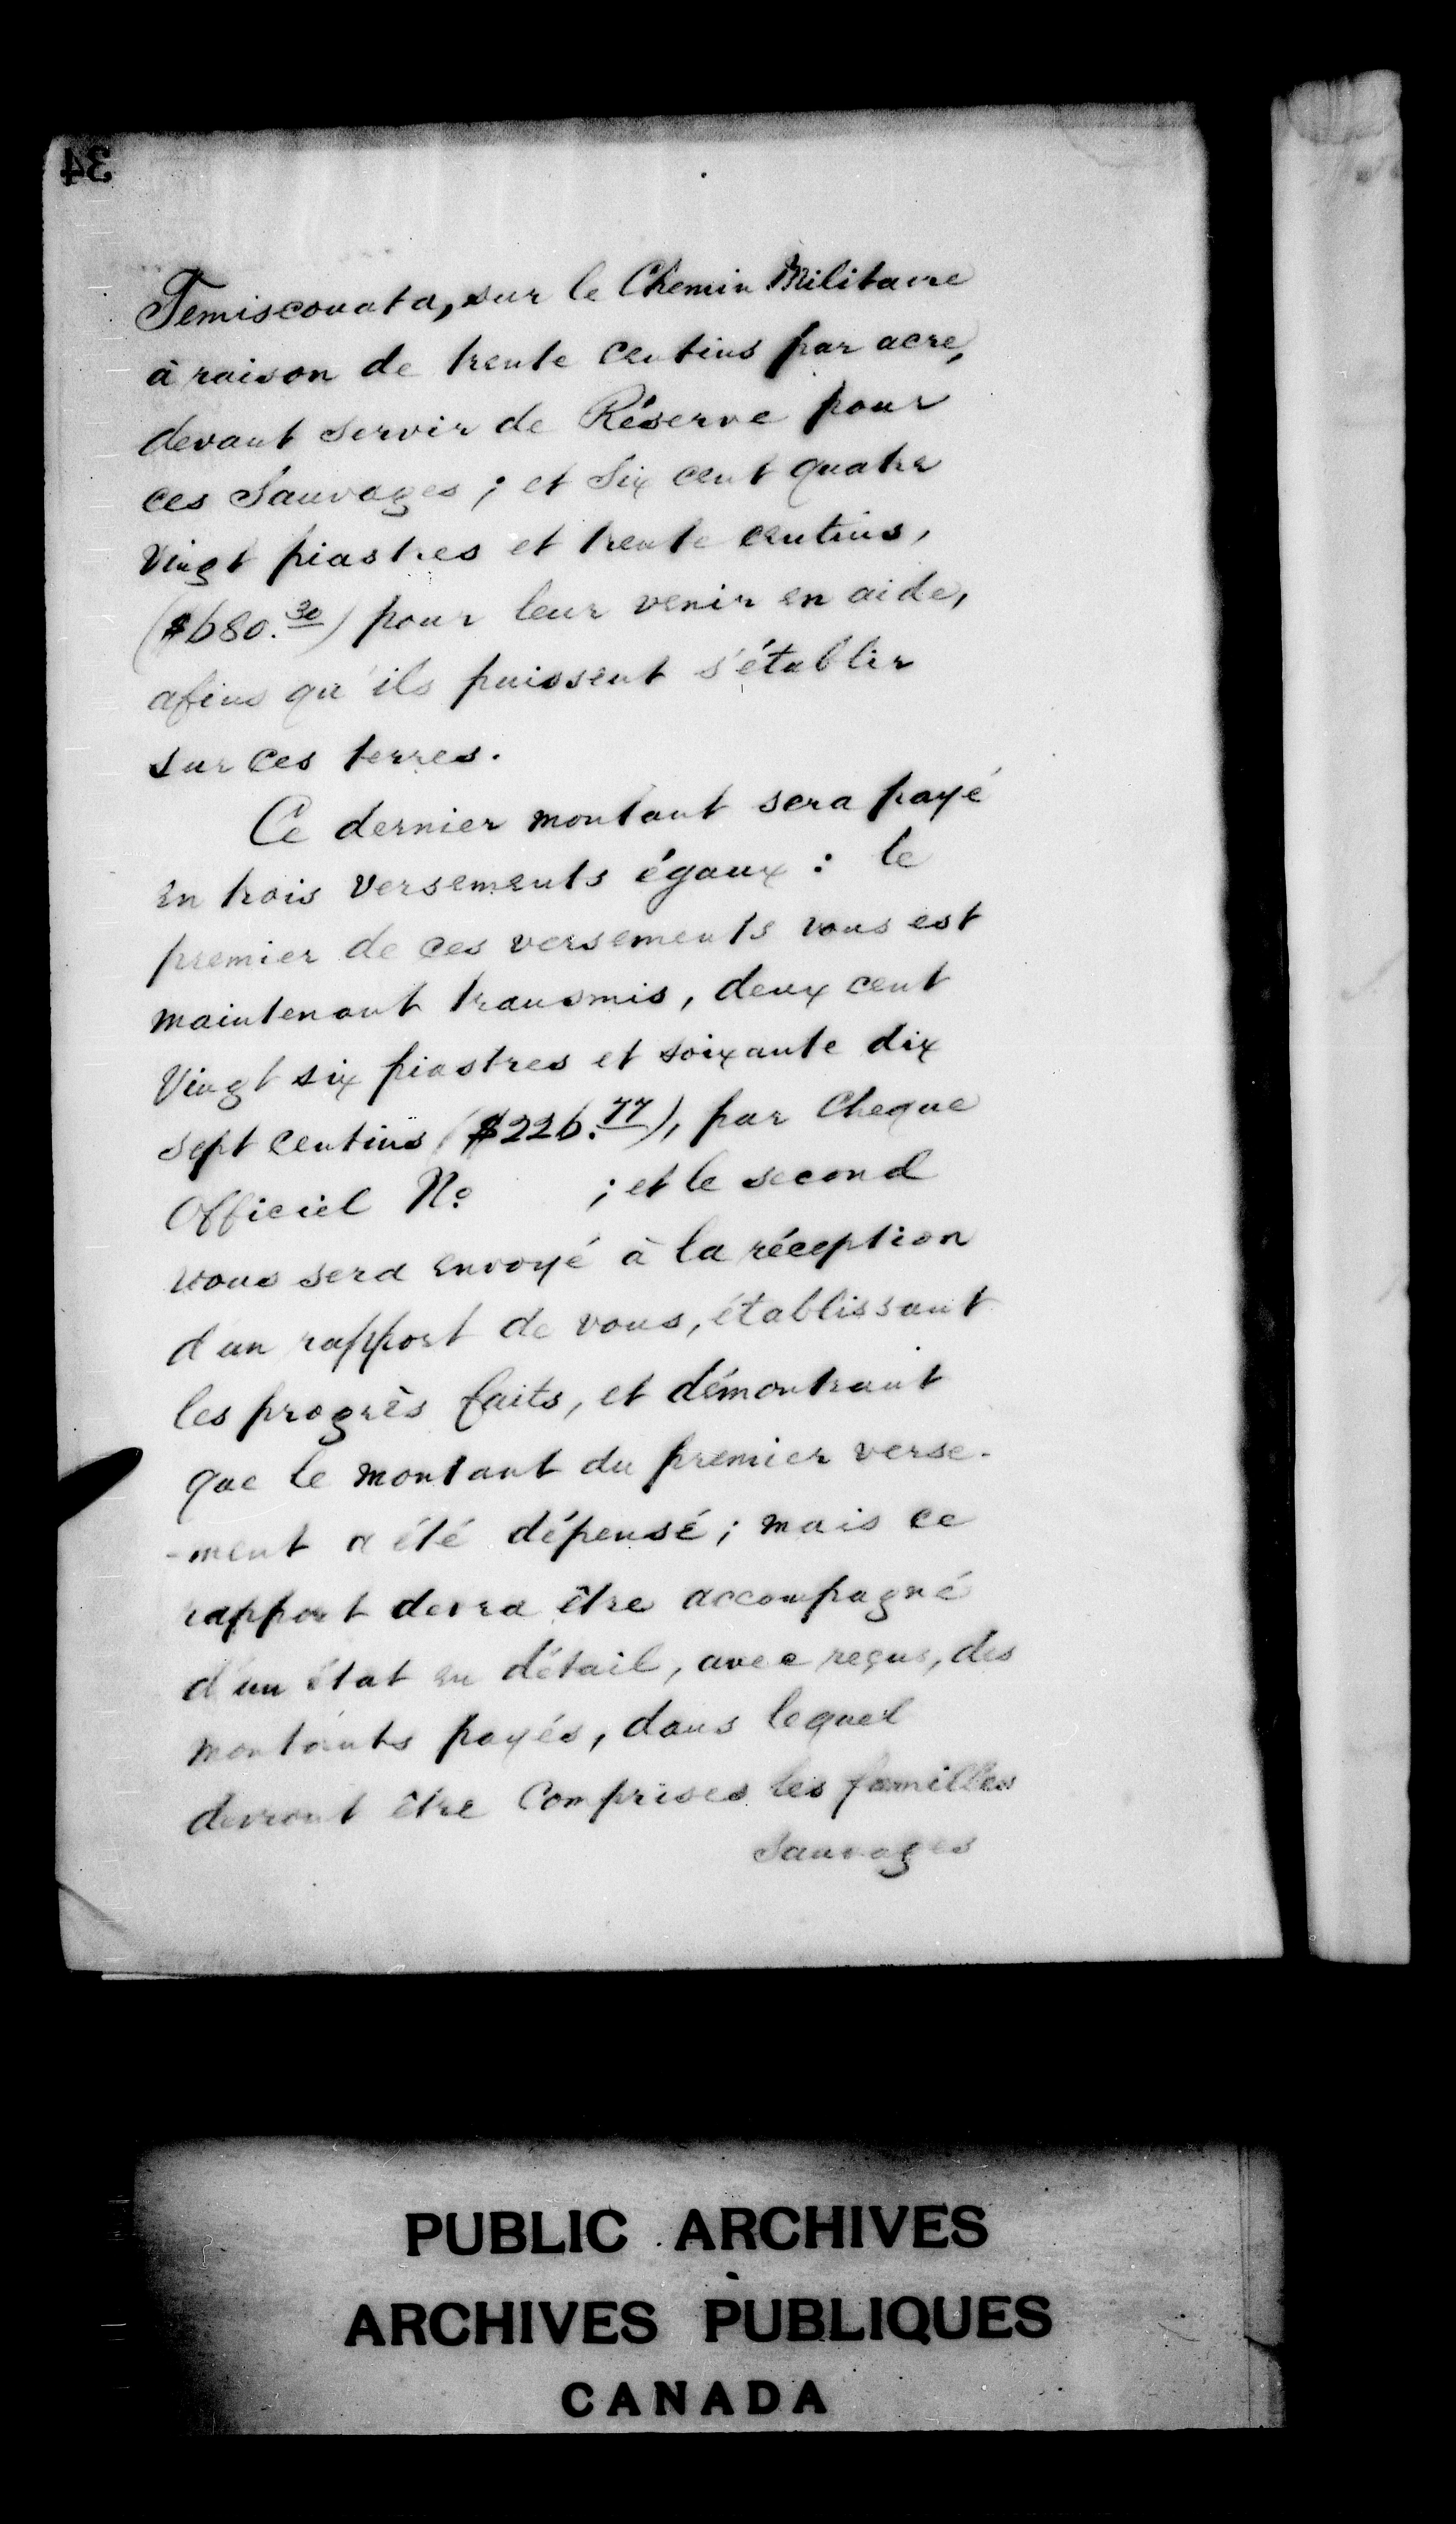 34
Temiscouata, sur le Chemin Militaire
à raison de trente centins par acre,
devant servir de Réserve pour
ces Sauvages ; et Six cent quatre
Vingt piastres et trente centins,
($680.30) pour leur venir en aide,
afins qu'ils puissent s'établir
sur ces terres.
Ce dernier montant sera payé
en trois versements égaux : le
premier de ces versements vous est
maintenant transmis, deux cent
Vingt six piastres et soixante dix
sept centins ($226.77), par Cheque
Officiel No ; et le second
vous sera envoyé à la réception
d'un rapport de vous, établissant
les progrès faits, et démontrant
que le montant du premier verse-
-ment a été dépensé ; mais ce
rapport devra être accompagné
d'un état en détail, avec reçus, des
montants payés, dans lequel
devront être Comprises les familles
Sauvages
PUBLIC ARCHIVES
ARCHIVES PUBLIQUES
CANADA